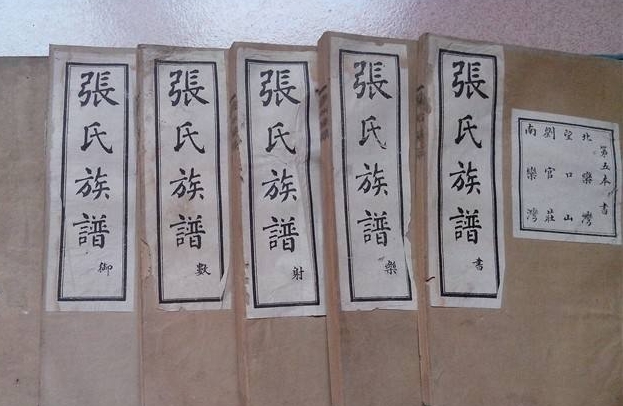 張氏族譜 御
張氏族譜 數
張氏族譜 射
張氏族譜 樂
張氏族譜 書
第五本 書
北欒灣
望口山
劉官莊
南欒灣